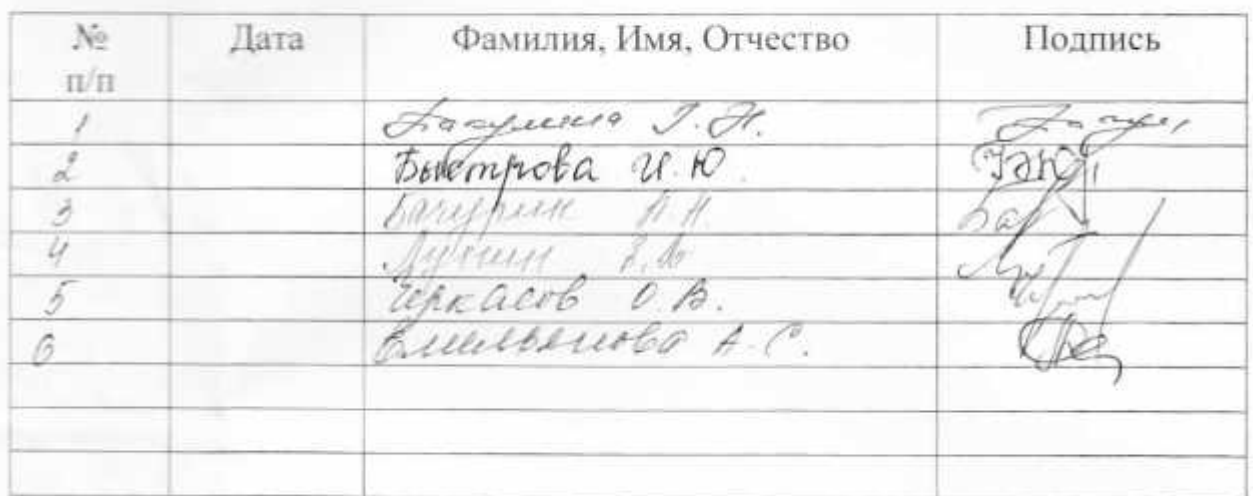 № п/п Дата Фамилия, Имя, Отчество Подпись
1 Бакулина Г. Н.
2 Быстрова И. Ю.
3 Бачурин А. Н.
4 Лунин
5 Черкасов О. В.
6 Емельянова А. С.